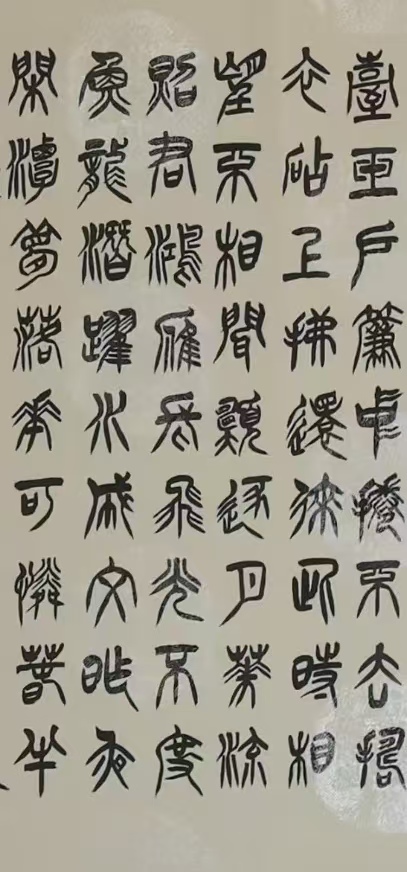 臺玉戶簾中捲不去搗
衣砧上拂還來此時相
望不相聞願逐月華流
照君鴻雁長飛光不度
魚龍潛躍水成文昨夜
閑潭夢落花可憐春半